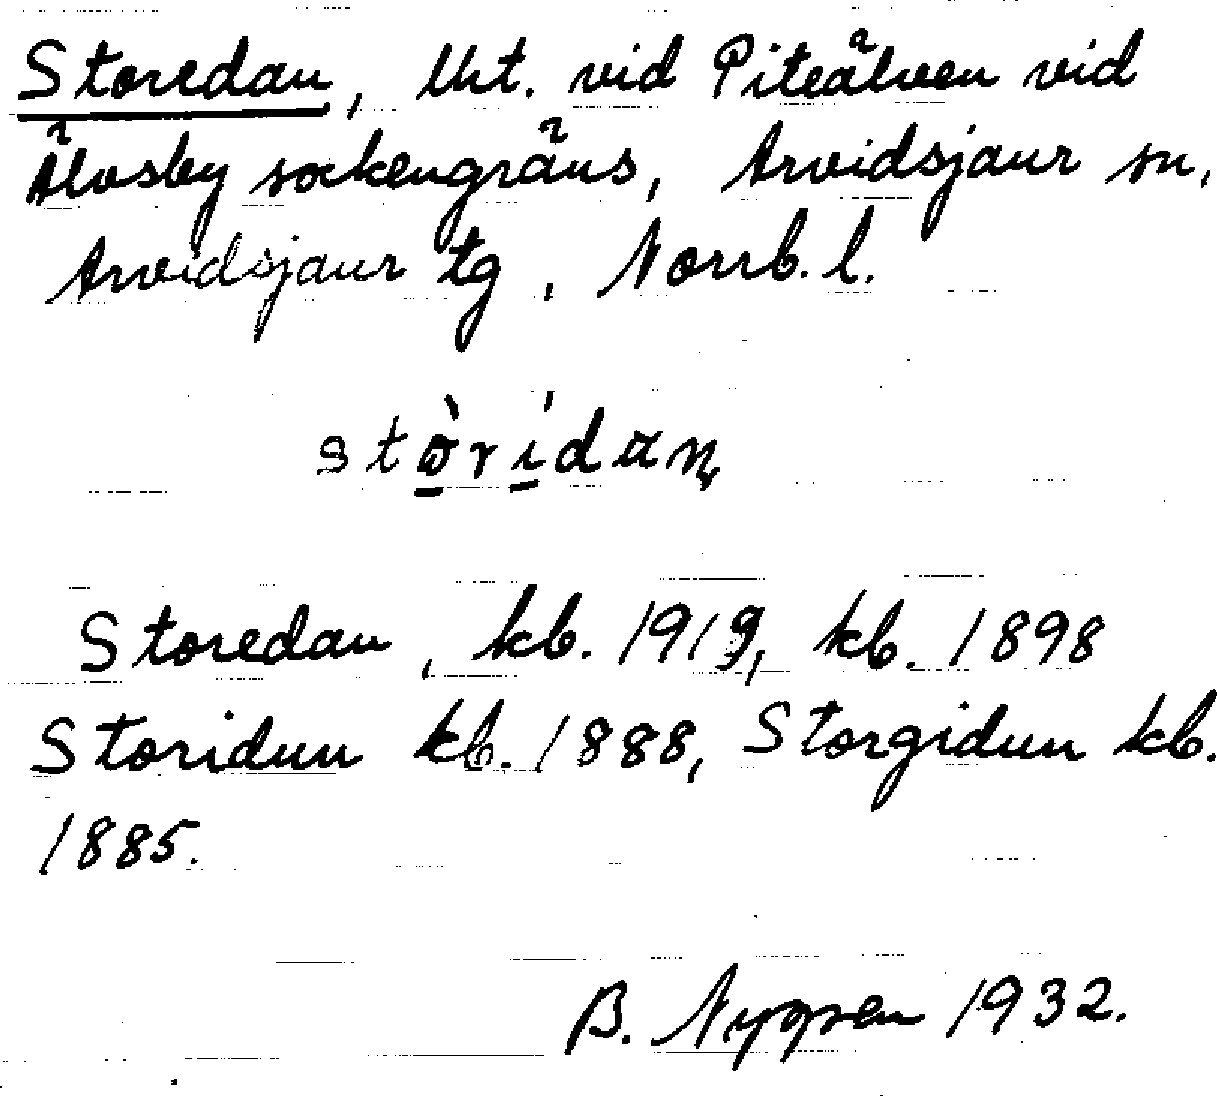 Storedan, lht. vid Piteälven vid
Älvsby sockengräns, Arvidsjaur sn,
Arvidsjaur tg, Norrb. l.
stòrídan
Storedan, kb. 1919, kb. 1898
Storidun kb. 1888, Storgidun kb.
1885.
B. Nyppen 1932.